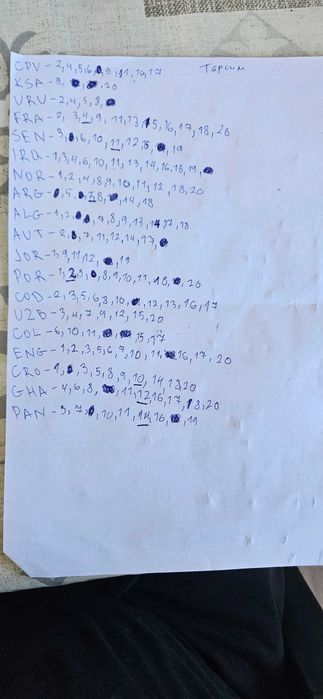 Тарсим
CPV-2,4,5,6,9,11,16,17
KSA-9,20
URU-2,4,5,8
FRA-2,3,4,9,11,13,15,16,17,18,20
SEN-3,6,10,11,12,19
IRQ-1,3,4,6,10,11,13,14,16,18,19
NOR-1,2,4,8,9,10,11,12,18,20
ARG-5,8,14,18
ALG-1,2,7,8,9,13,14,17,18
AUT-2,7,11,12,14,17
JOR-1,9,11,12,19
POR-1,2,5,8,9,10,11,18,20
COD-2,3,5,6,8,10,12,13,16,17
UZB-3,4,7,9,12,15,20
COL-6,10,11,15,17
ENG-1,2,3,5,6,7,10,11,16,17,20
CRO-1,3,5,8,9,10,14,18,20
GHA-4,6,8,11,12,16,17,18,20
PAN-3,7,10,11,14,16,19